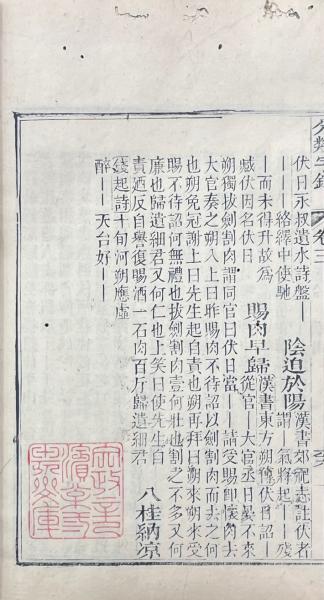 分類字錦 卷三
伏日永叔遺水詩盤—
——絡繹中使馳
陰迫於陽
漢書郊祀志註伏者
謂——氣將起——殘
—而未得升故為
臧伏因名伏日
賜肉早歸
漢書東方朔傳伏日詔
—從官—大官丞日晏不來
朔獨拔劍割肉謂同官曰伏日當——請受賜即懷肉去
大官奏之朔入上曰昨賜肉不待詔以劍割肉而去之何
也朔免冠謝上曰先生起自責也朔再拜曰朔來朔來受
賜不待詔何無禮也拔劍割肉壹何壯也割之不多又何
廉也歸遺細君又何仁也上笑曰使先生自
責廼反自譽復賜酒一石肉百斤歸遺細君
八桂納凉
錢起詩十旬河朔應虛
醉——天台好——